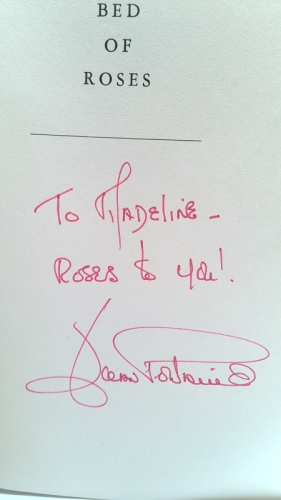 BED
OF
ROSES
To MADELINE -
ROSES to you!
Joan Fontaine